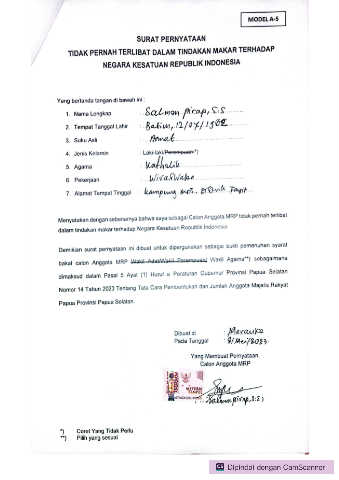 MODEL A-5
SURAT PERNYATAAN
TIDAK PERNAH TERLIBAT DALAM TINDAKAN MAKAR TERHADAP
NEGARA KESATUAN REPUBLIK INDONESIA
Yang bertanda tangan di bawah ini :
1. Nama Lengkap : Salmon Pirap, S.S
2. Tempat Tanggal Lahir : 12/07/
3. Suku Asli :
4. Jenis Kelamin : Laki-laki/Perempuan*)
5. Agama : Katholik
6. Pekerjaan : Wiraswasta
7. Alamat Tempat Tinggal : Kampung
Menyatakan dengan sebenarnya bahwa saya sebagai Calon Anggota MRP tidak pernah terlibat
dalam tindakan makar terhadap Negara Kesatuan Republik Indonesia
Demikian surat pernyataan ini dibuat untuk dipergunakan sebagai bukti pemenuhan syarat
bakal calon Anggota MRP Wakil Adat/Wakil Perempuan/ Wakil Agama**) sebagaimana
dimaksud dalam Pasal 5 Ayat (1) Huruf Peraturan Gubernur Provinsi Papua Selatan
Nomor 14 Tahun 2023 Tentang Tata Cara Pembentukan dan Jumlah Anggota Majelis Rakyat
Papua Provinsi Papua Selatan.
Dibuat di : Merauke
Pada Tanggal : /Mei/2023
Yang Membuat Pernyataan
Calon Anggota MRP
METERAI
TEMPEL
Salmon Pirap, S.S
*) Coret Yang Tidak Perlu
**) Pilih yang sesuai
CS Dipindai dengan CamScanner